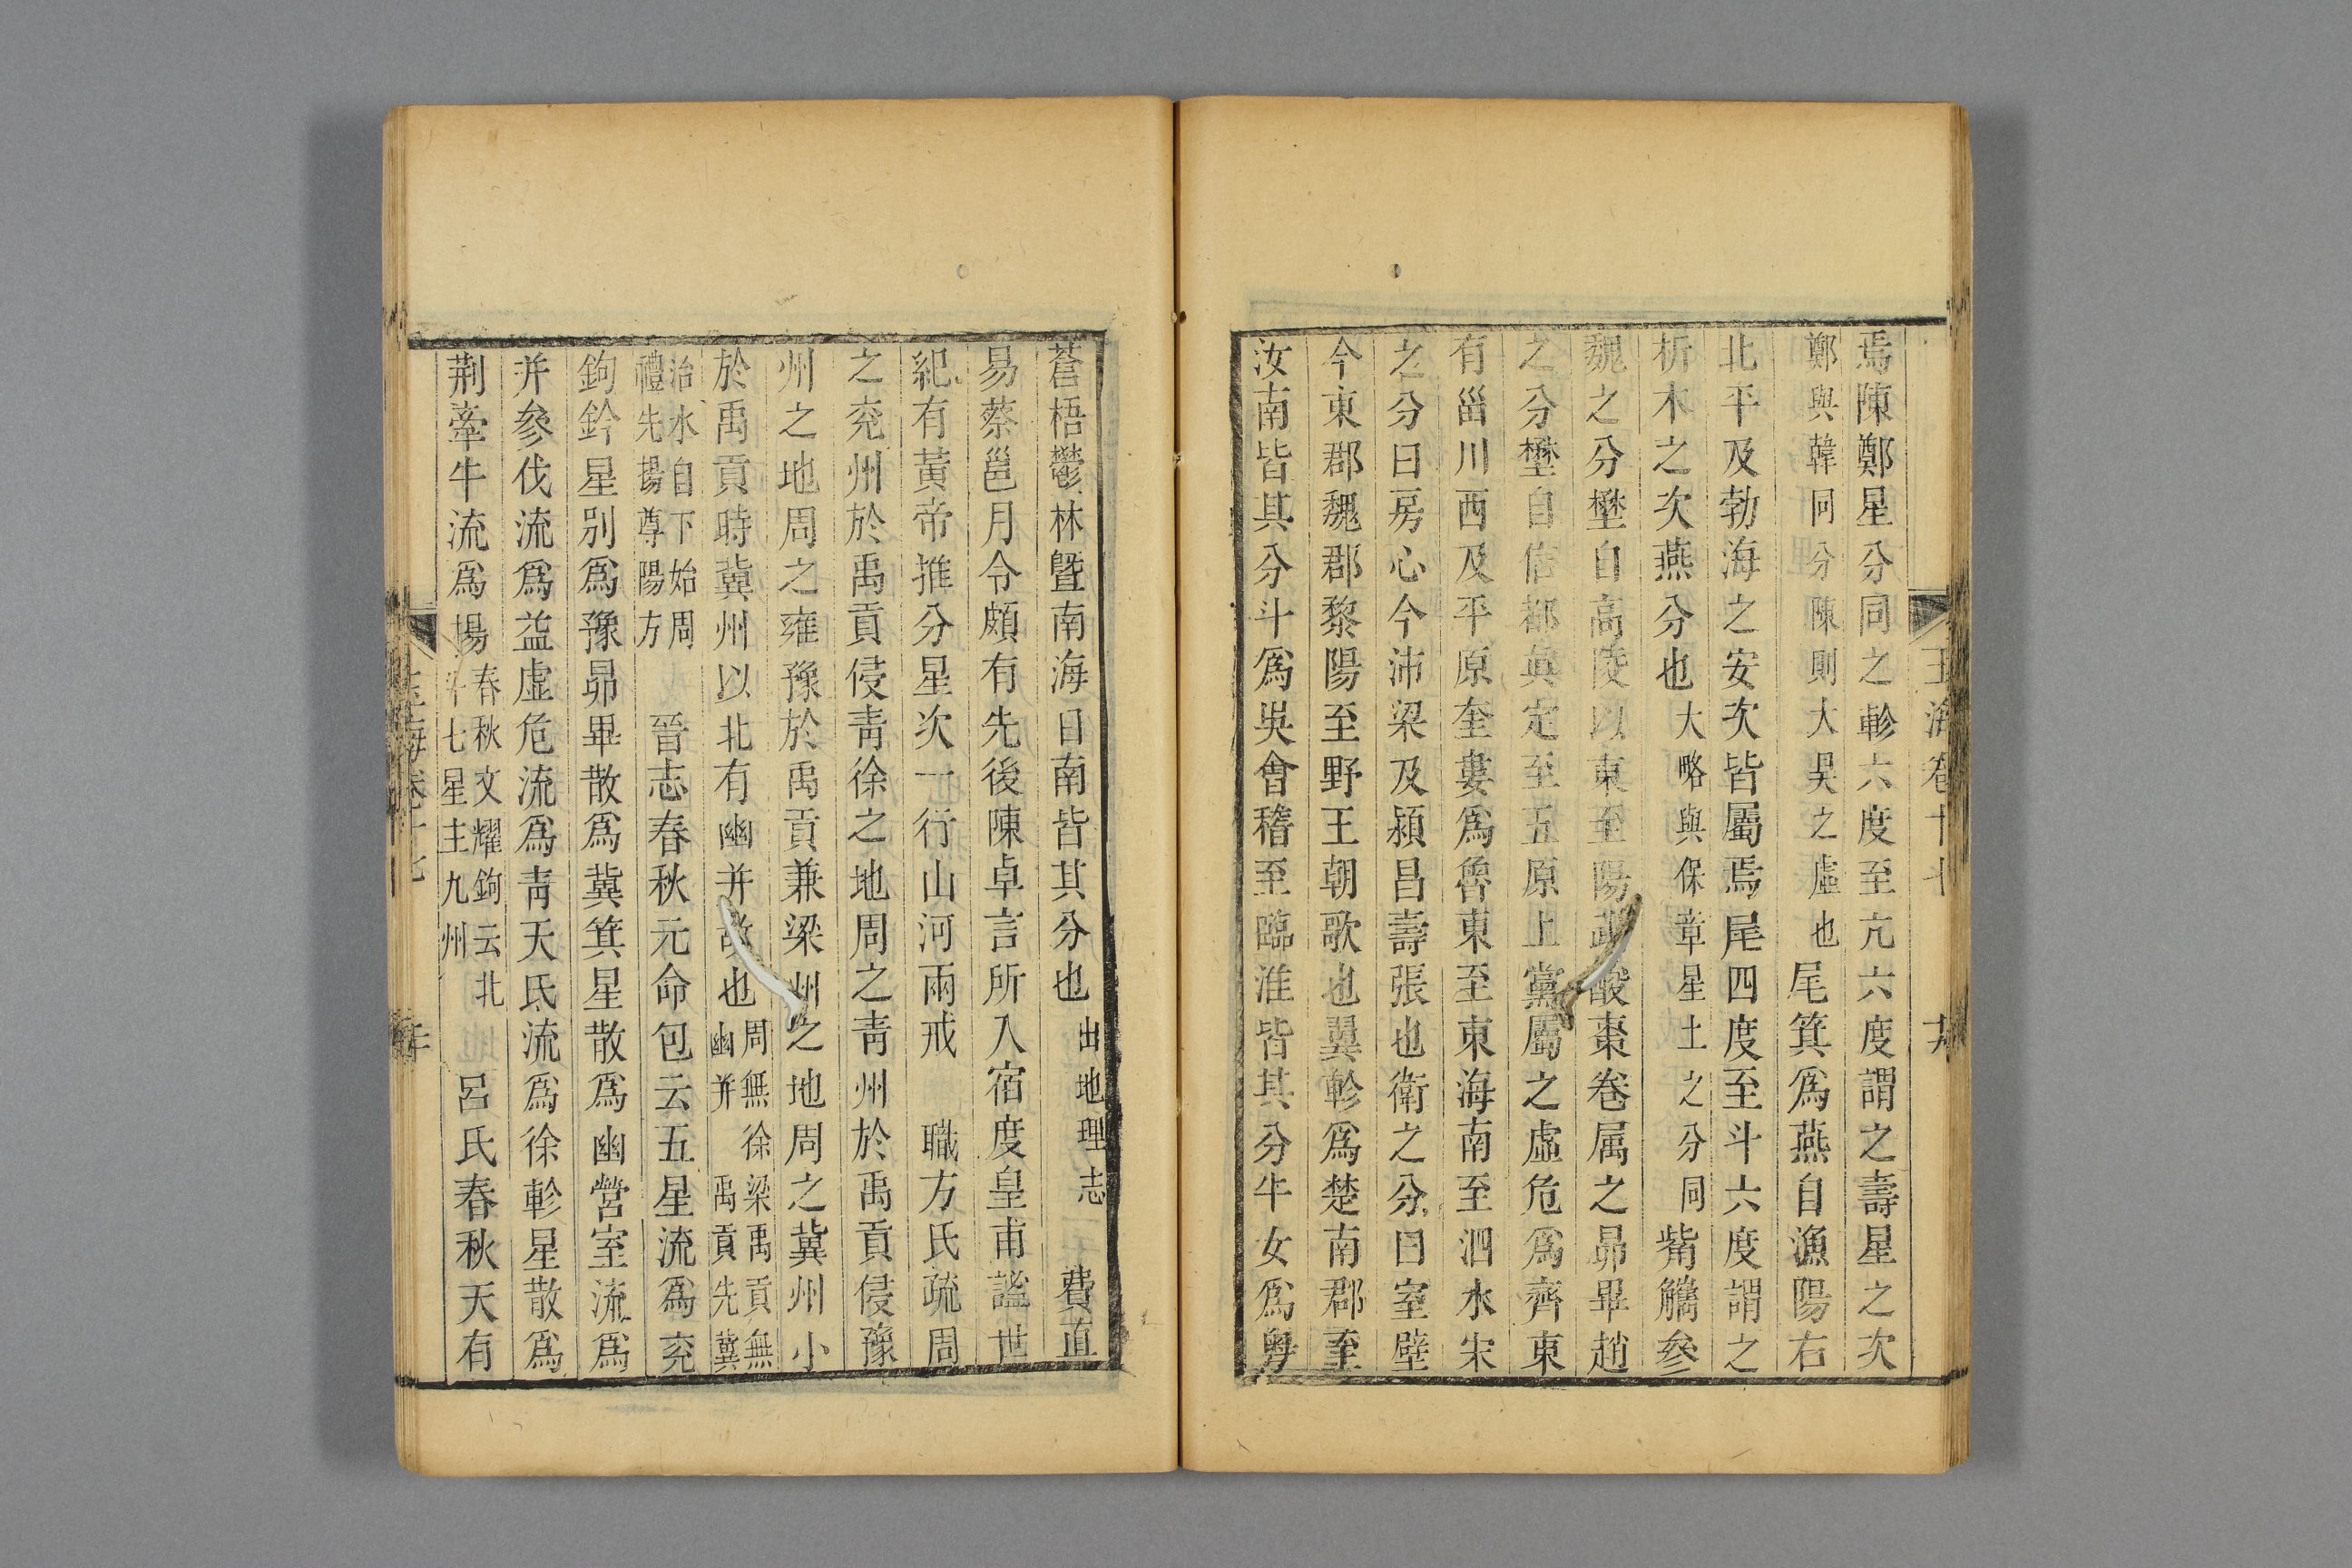 焉陳鄭星分同之軫六度至亢六度謂之壽星之次
鄭與韓同分陳則大昊之虛也尾箕爲燕自漁陽右
北平及勃海之安次皆屬焉尾四度至斗六度謂之
析木之次燕分也大略與保章星土之分同觜觿參
魏之分壄自高陵以東至陽武酸棗卷属之昴畢趙
之分壄自信都眞定至五原上黨屬之虛危爲齊東
有甾川西及平原奎婁爲魯東至東海南至泗水宋
之分曰房心今沛梁及潁昌壽張也衛之分曰室壁
今東郡魏郡黎陽至野王朝歌也翼軫爲楚南郡至
汝南皆其分斗爲吳會稽至臨淮皆其分牛女爲粵
玉海卷十七
蒼梧鬱林曁南海日南皆其分也出地理志 費直
易蔡邕月令頗有先後陳卓言所入宿度皇甫謐世
紀有黃帝推分星次一行山河兩戒 職方氏疏周
之兖州於禹貢侵青徐之地周之青州於禹貢侵豫
州之地周之雍豫於禹貢兼梁州之地周之冀州小
於禹貢時冀州以北有幽并故也周無徐梁禹貢無
幽并 禹貢先冀
治水自下始周
禮先揚尊陽方 晉志春秋元命包云五星流爲兖
鉤鈐星別爲豫昴畢散爲冀箕星散爲幽營室流爲
并參伐流爲益虛危流爲青天氐流爲徐軫星散爲
荆牽牛流爲揚春秋文耀鉤云北
斗七星主九州 呂氏春秋天有
玉海卷十七